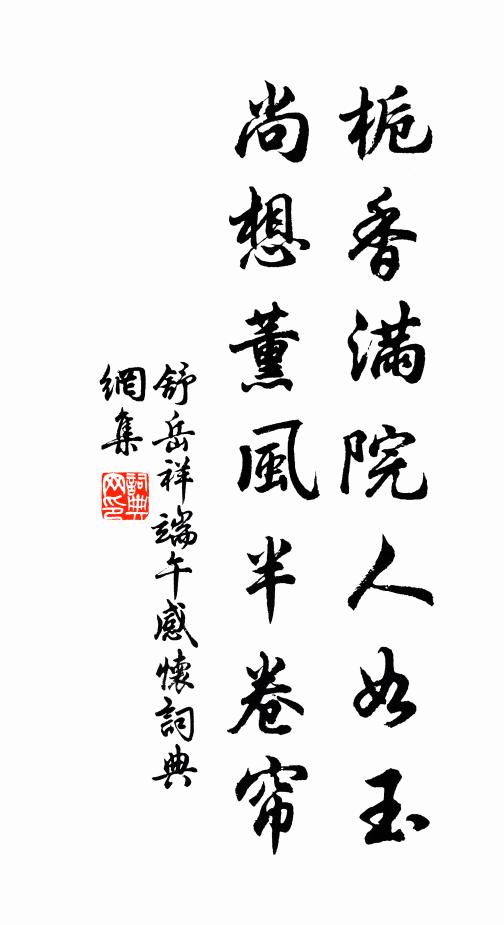 栀香滿院人如玉
尚想薰風半卷帘
舒岳祥端午感懷詞典
網集
詞典
网印